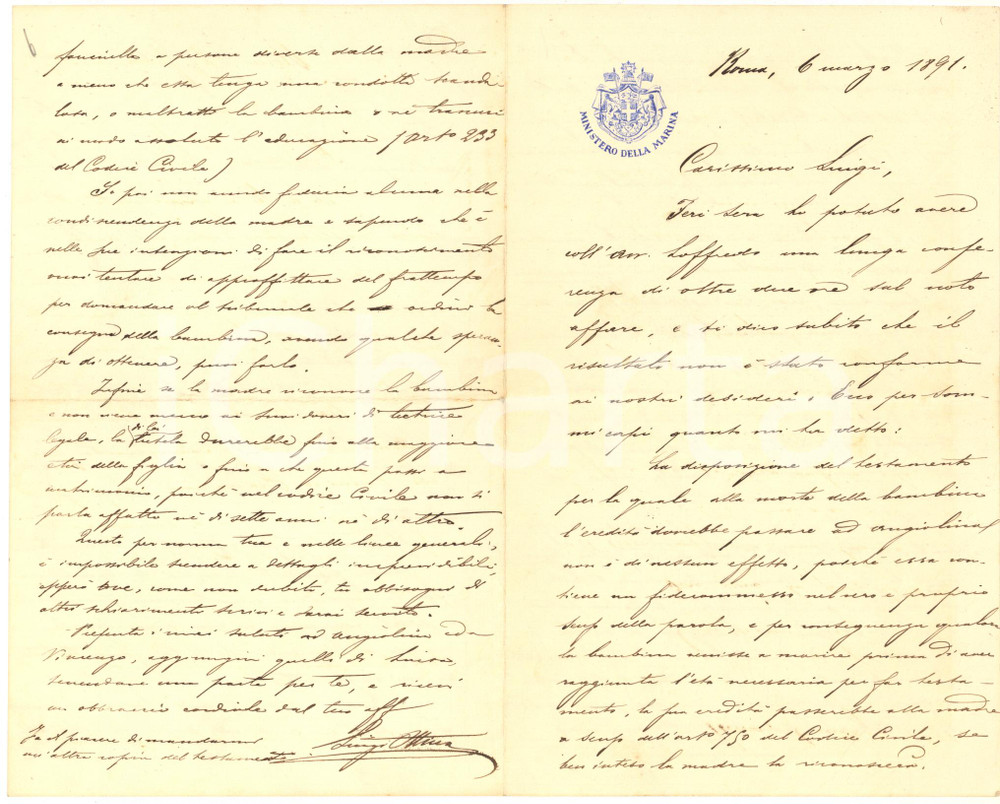 Roma, 6 marzo 1891.
MINISTERO DELLA MARINA
Carissimo Luigi,
Ieri sera ho potuto avere
coll'avv. Loffredo una lunga confe-
renza di oltre due ore sul noto
affare, e ti dico subito che il
risultato non è stato conforme
ai nostri desideri. Ecco per som-
mi capi quanto mi ha detto:
La disposizione del testamento
per la quale alla morte della bambina
l'eredità dovrebbe passare ad Angiolina
non è di nessun effetto, poichè essa con-
tiene un fidecommesso nel vero e proprio
senso della parola, e per conseguenza qualora
la bambina venisse a morire prima di aver
raggiunta l'età necessaria per far testa-
mento, la sua eredità passerebbe alla madre
a senso dell'arto 750 del Codice Civile, se
ben inteso la madre la riconoscerà.
6
fanciulla a persone diverse dalla madre
a meno che essa tenga una condotta scanda
losa, o maltratti la bambina o nè trascuri
in modo assoluto l'educazione (arto 233
del Codice Civile)
Se poi non avendo fiducia alcuna nella
condiscendenza della madre e sapendo che è
nelle sue intenzioni di fare il riconoscimento
vuoi tentare di approffittare del frattempo
per domandare al tribunale che ordini la
consegna della bambina, avendo qualche speran-
za di ottenere, puoi farlo.
Infine se la madre riconosce la bambina
e non viene meno ai suoi doveri di tutrice
legale, la di lei tutela durerebbe fino alla maggiore
età della figlia o fino a che questa passi a
matrimonio, poichè nel codice Civile non si
parla affatto nè di sette anni nè di altro.
Questo per norma tua e nelle linee generali,
è impossibile scendere a dettagli imprevedibili,
epperò ove, come non dubito, tu abbisogni di
altri schiarimenti scrivi e sarai servito.
Presenta i miei saluti ad Angiolina ed a
Vincenzo, aggiungivi quelli di Luisa,
serbandone una parte per te, e ricevi
un abbraccio cordiale dal tuo aff
Luigi
Fa il piacere di mandarmi
un'altra copia del testamento